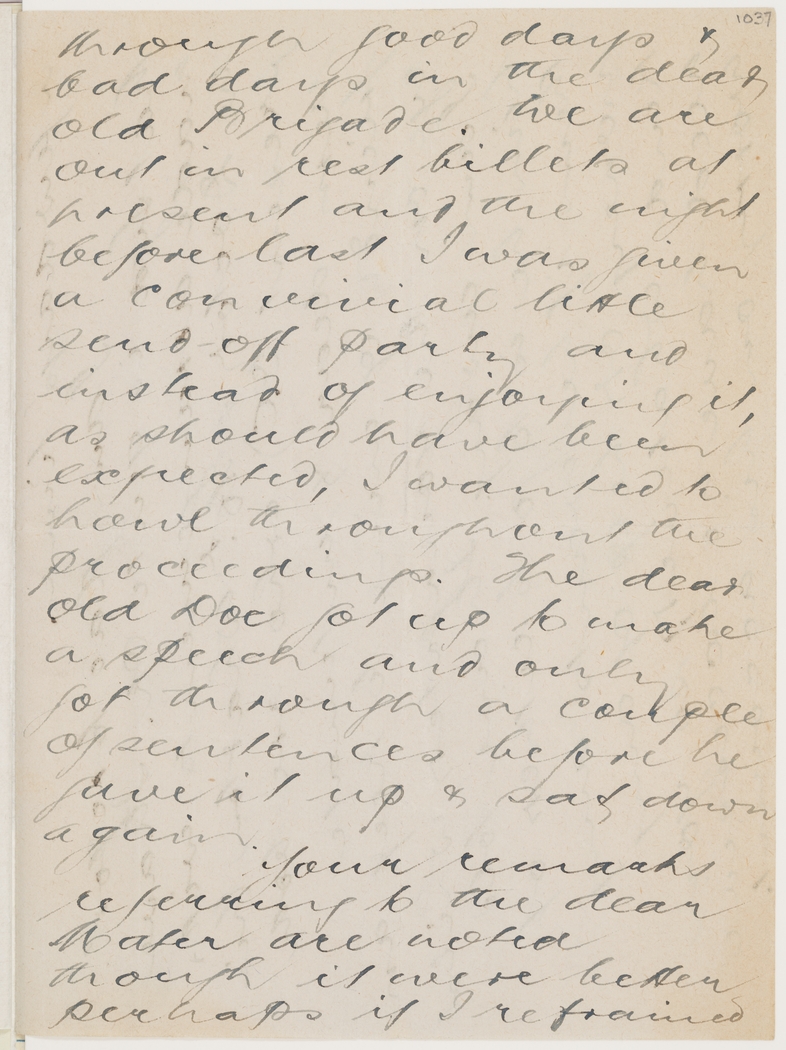 1037
through good days &
bad days in the dear
old Brigade. We are
out in rest billets at
present and the night
before last I was given
a convivial little
send-off party and
instead of enjoying it,
as should have been
expected, I wanted to
howl throughout the
proceedings. The dear
old Doc got up to make
a speech and only
got through a couple
of sentences before he
gave it up & sat down
again.
Your remarks
referring to the dear
Mater are noted
though it were better
perhaps if I refrained